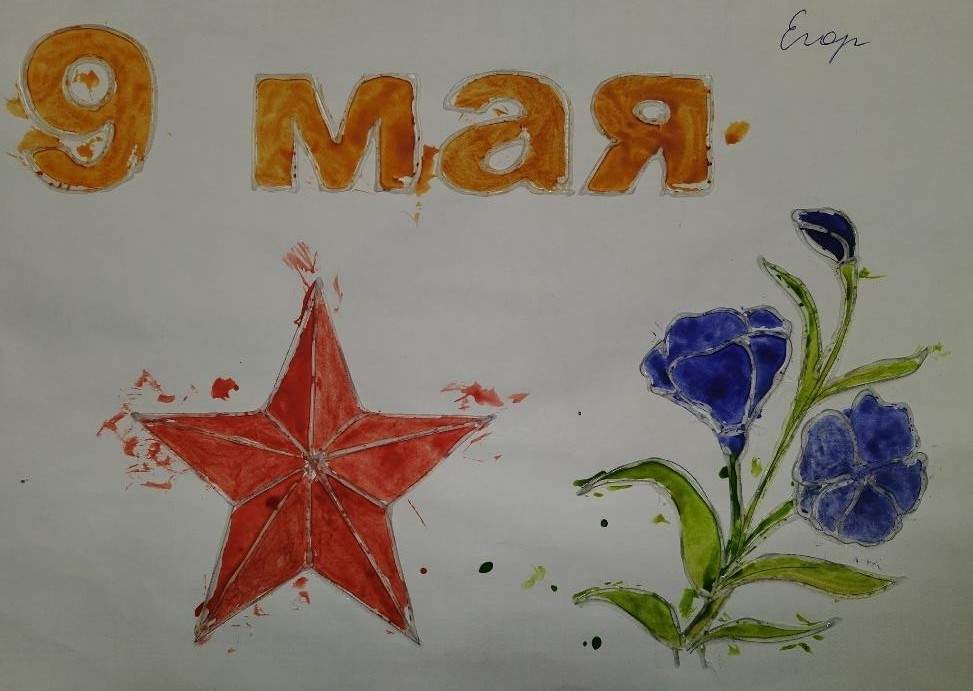 Егор
9 мая